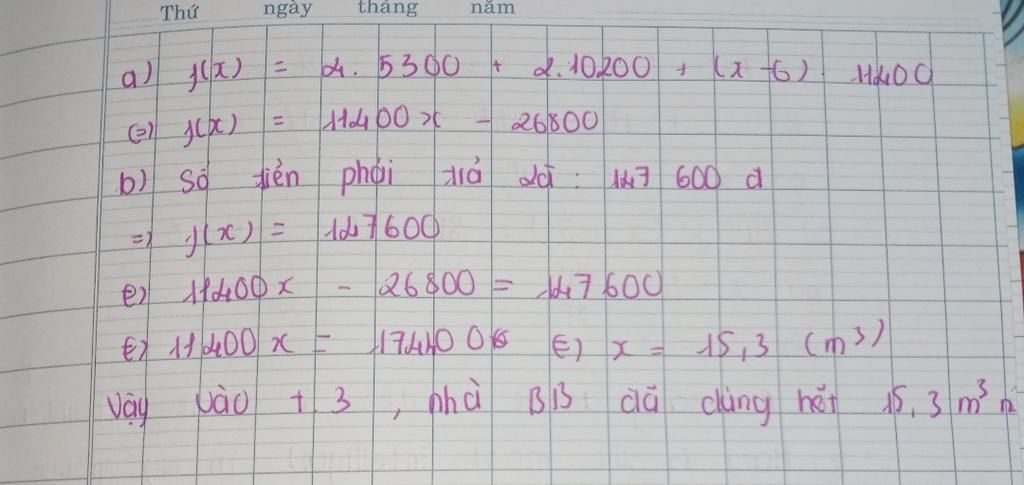 Thứ ngày tháng năm
a) f(x) = 4. 5300 + 2.10200 + (x-6) 11400
(=) f(x) = 11400x - 26800
b) Số tiền phải trả là : 147 600 đ
=) f(x) = 147600
(=) 11400x - 26800 = 147600
(=) 11400x = 174400 (=) x = 15,3 (m³)
Vậy vào t 3 , nhà BB đã dùng hết 15,3 m³